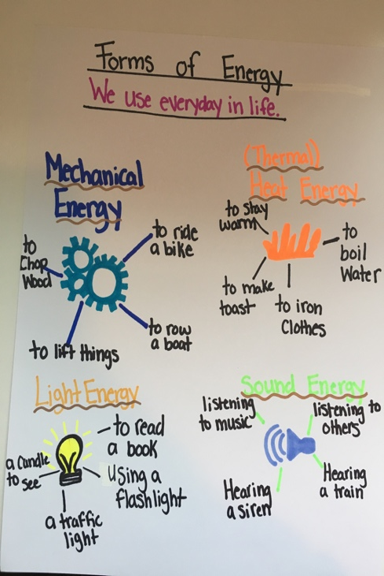 Forms of Energy
We use everyday in life.
Mechanical
Energy
to
Chop
Wood
to ride
a bike
to row
a boat
to lift things
(Thermal)
Heat Energy
to stay
warm
to
boil
Water
to make
toast
to iron
Clothes
Light Energy
to read
a book
a candle
to see
Using a
flashlight
a traffic
light
Sound Energy
listening
to music
listening to
others
Hearing
a siren
Hearing
a train